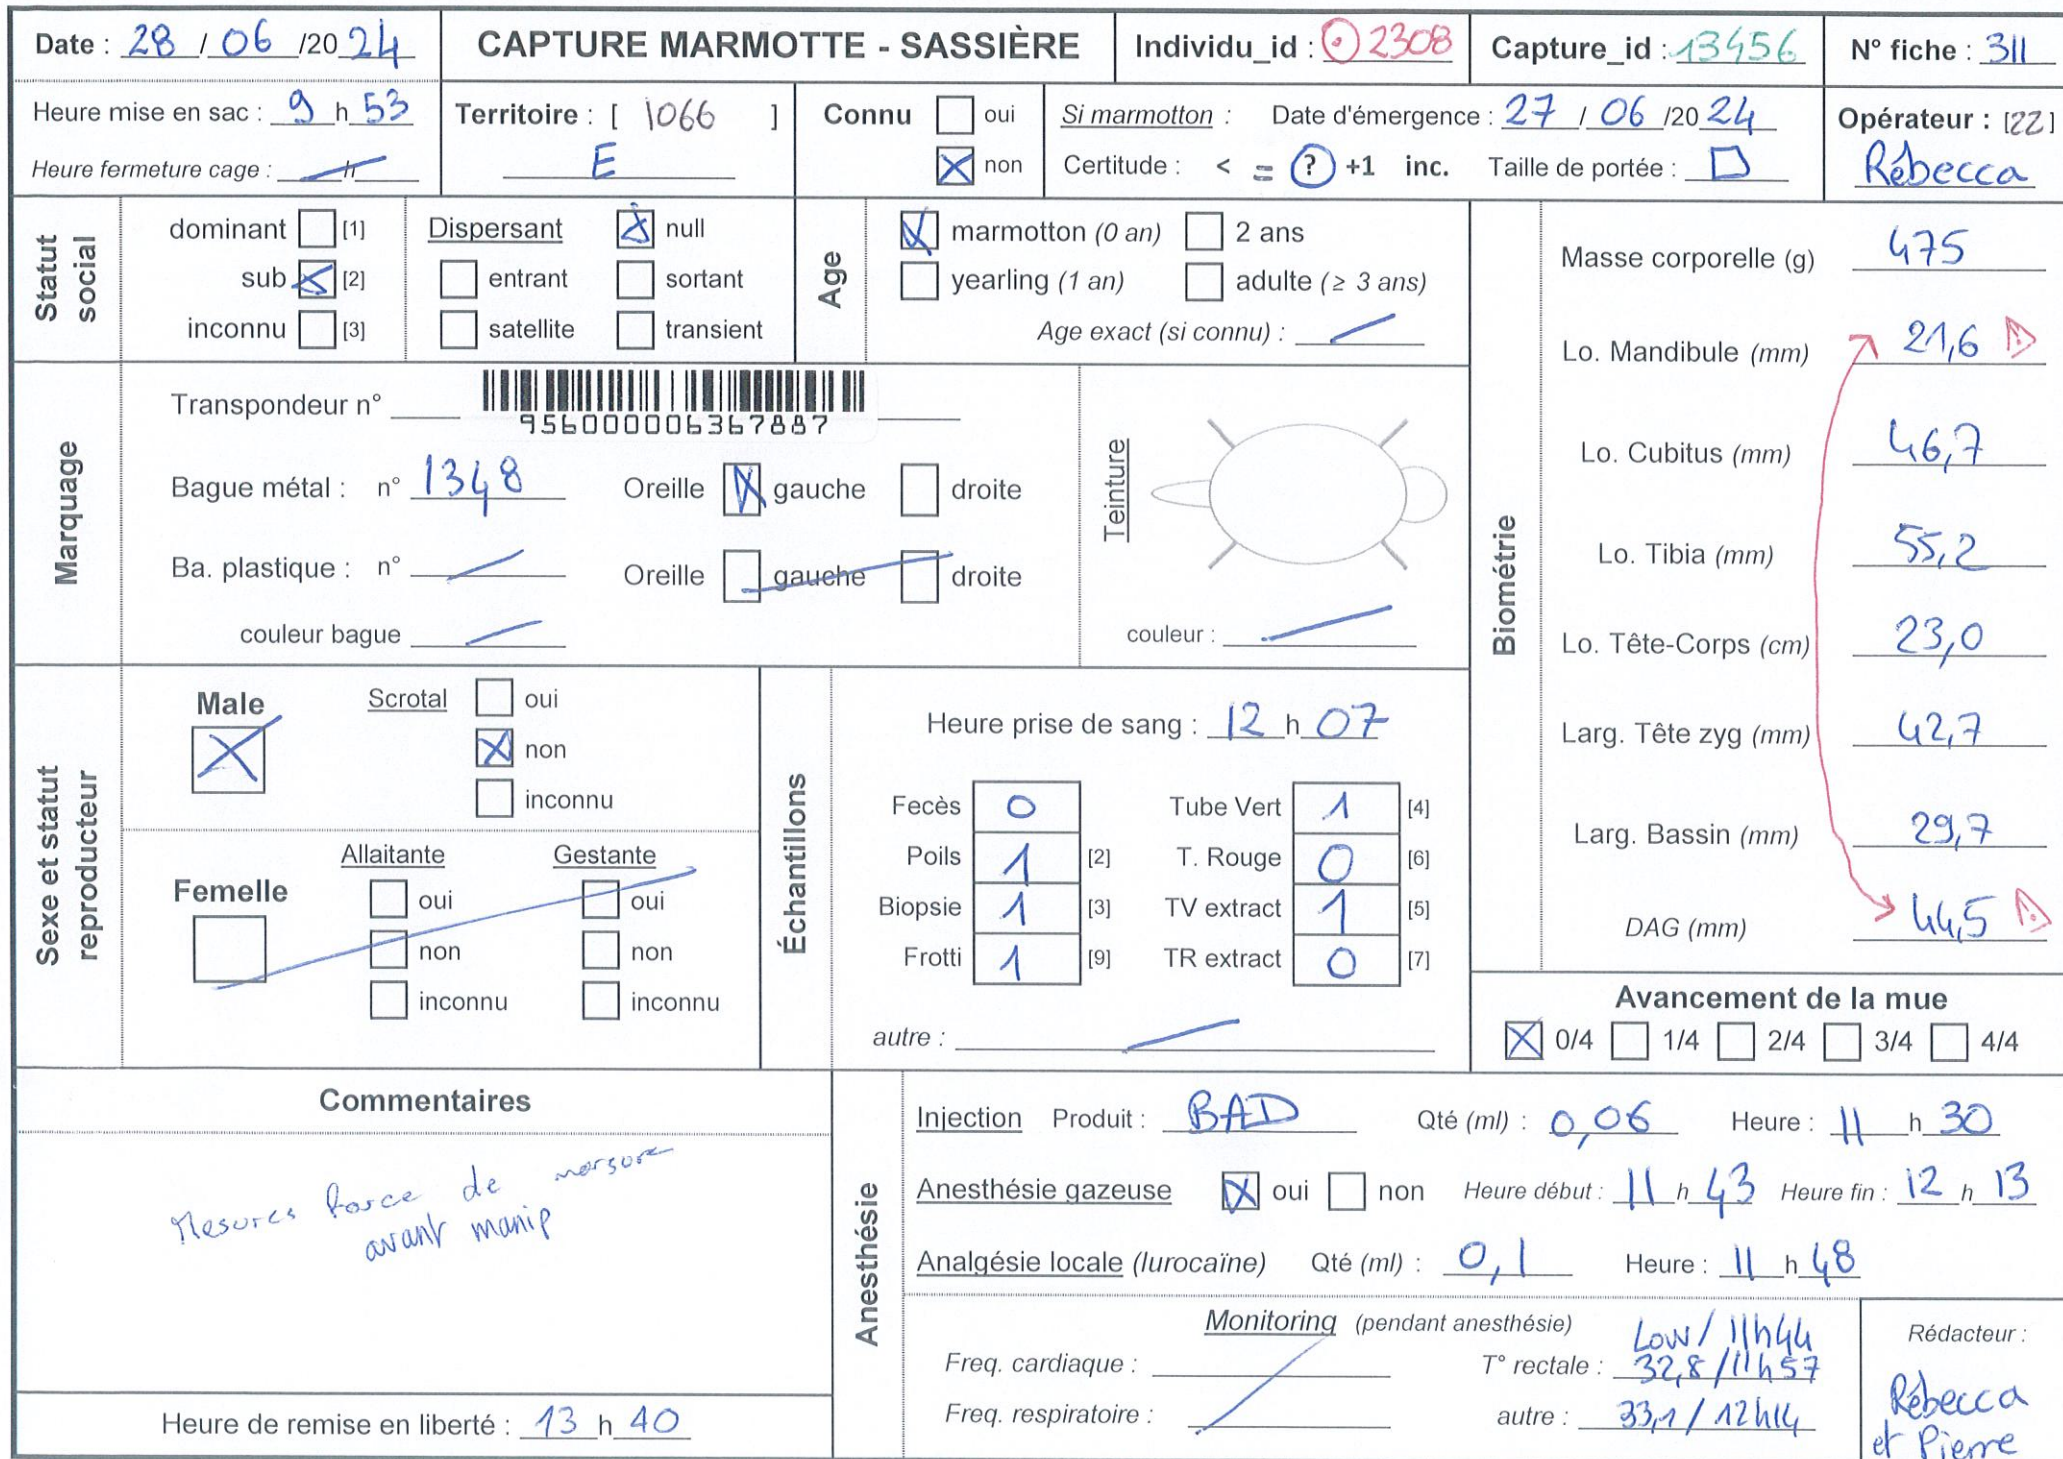 Date : 28 / 06 /20 24
CAPTURE MARMOTTE - SASSIÈRE
Individu_id : 2308
Capture_id : 13456
N° fiche : 311
Heure mise en sac : 9 h 53
Heure fermeture cage : h
Territoire : [ 1066 ]
E
Connu oui
non
Si marmotton : Date d'émergence : 27 / 06 /20 24
Certitude : < = ? +1 inc. Taille de portée :
Opérateur : [22]
Rébecca
Statut social
dominant [1]
sub [2]
inconnu [3]
Dispersant null
entrant sortant
satellite transient
Age
marmotton (0 an) 2 ans
yearling (1 an) adulte (≥ 3 ans)
Age exact (si connu) :
Marquage
Transpondeur n°
956000006367887
Bague métal : n° 1348 Oreille gauche droite
Ba. plastique : n° Oreille gauche droite
couleur bague
Teinture
couleur :
Biométrie
Masse corporelle (g) 475
Lo. Mandibule (mm) 21,6
Lo. Cubitus (mm) 46,7
Lo. Tibia (mm) 55,2
Lo. Tête-Corps (cm) 23,0
Larg. Tête zyg (mm) 42,7
Larg. Bassin (mm) 29,7
DAG (mm) 44,5
Avancement de la mue
0/4 1/4 2/4 3/4 4/4
Sexe et statut reproducteur
Male
Scrotal oui
non
inconnu
Femelle
Allaitante Gestante
oui oui
non non
inconnu inconnu
Échantillons
Heure prise de sang : 12 h 07
Fecès 0 Tube Vert 1 [4]
Poils 1 [2] T. Rouge 0 [6]
Biopsie 1 [3] TV extract 1 [5]
Frotti 1 [9] TR extract 0 [7]
autre :
Commentaires
Mesures force de morsure
avant manip
Heure de remise en liberté : 13 h 40
Anesthésie
Injection Produit : BAD Qté (ml) : 0,06 Heure : 11 h 30
Anesthésie gazeuse oui non Heure début : 11 h 43 Heure fin : 12 h 13
Analgésie locale (lurocaïne) Qté (ml) : 0,1 Heure : 11 h 48
Monitoring (pendant anesthésie)
Low / 11h44
Freq. cardiaque : T° rectale : 32,8 / 11h57
Freq. respiratoire : autre : 33,1 / 12h14
Rédacteur :
Rébecca
et Pierre